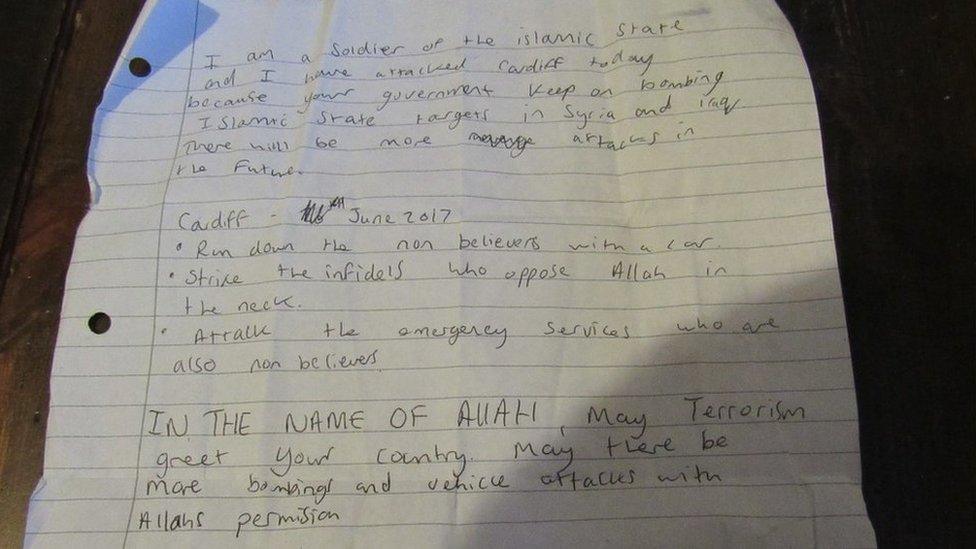 I am a Soldier of the islamic state
and I have attacked Cardiff today
because your government keep on bombing
Islamic State targets in Syria and iraq.
There will be more attacks in
the Future.
Cardiff - June 2017
• Run down the non believers with a car.
• Strike the infidels who oppose Allah in
the neck.
• Attack the emergency services who are
also non believers.
IN THE NAME OF AllAH, May Terrorism
greet your country. May there be
more bombings and vehicle attacks with
Allahs permision